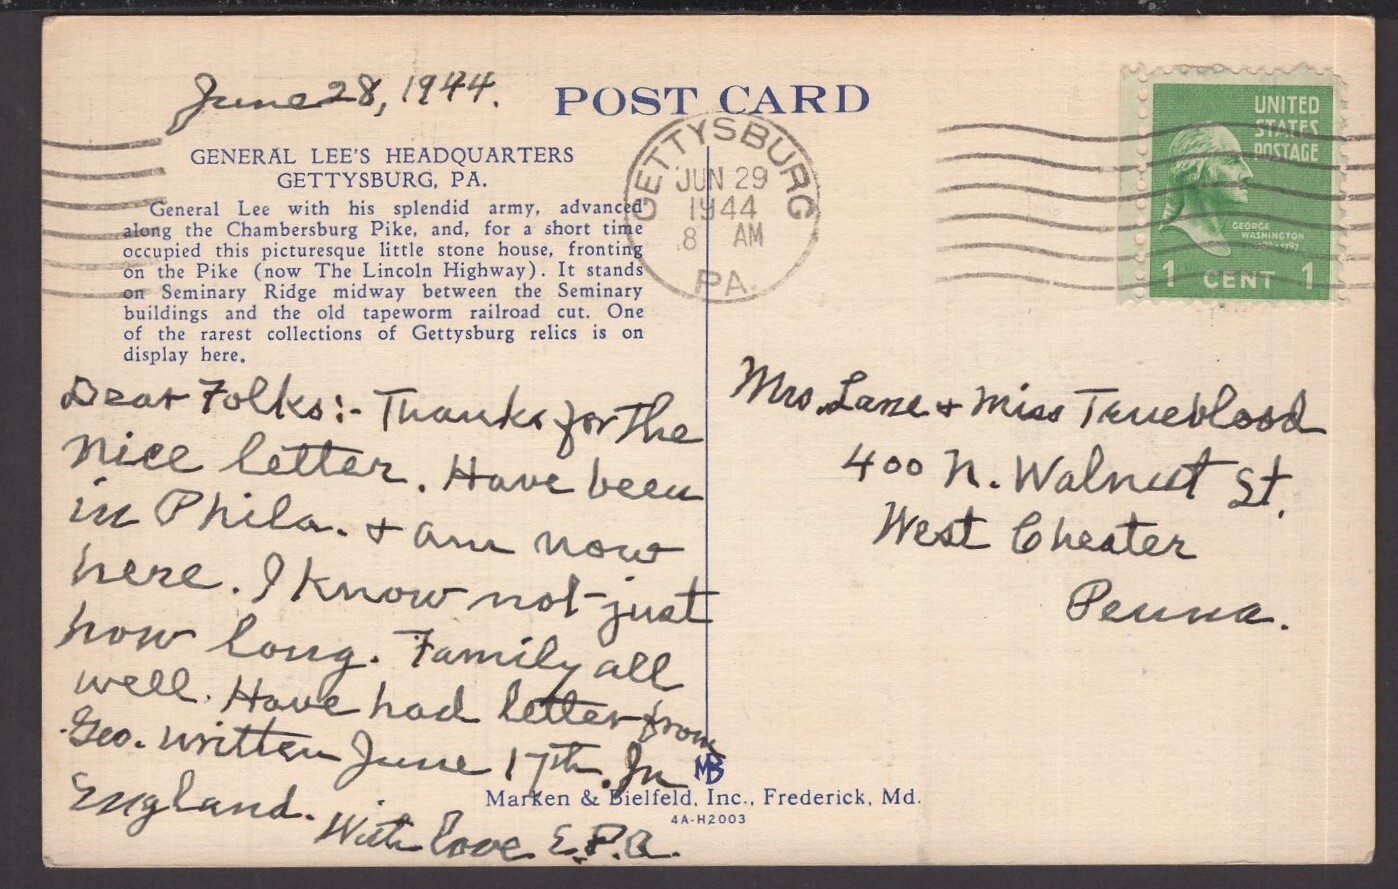 June 28, 1944.
POST CARD
GENERAL LEE'S HEADQUARTERS
GETTYSBURG, PA.
General Lee with his splendid army, advanced
along the Chambersburg Pike, and, for a short time
occupied this picturesque little stone house, fronting
on the Pike (now The Lincoln Highway). It stands
on Seminary Ridge midway between the Seminary
buildings and the old tapeworm railroad cut. One
of the rarest collections of Gettysburg relics is on
display here.
Dear Folks:- Thanks for the
nice letter. Have been
in Phila. & am now
here. I know not just
how long. Family all
well. Have had letter from
Geo. written June 17th. In
England.
With love E.P.A.
GETTYSBURG
JUN 29
1944
8 AM
PA.
UNITED
STATES
POSTAGE
GEORGE
WASHINGTON
1 CENT 1
Mrs. Lane & Miss Trueblood
400 N. Walnut St.
West Chester
Penna.
MB
Marken & Bielfeld, Inc., Frederick, Md.
4A-H2003